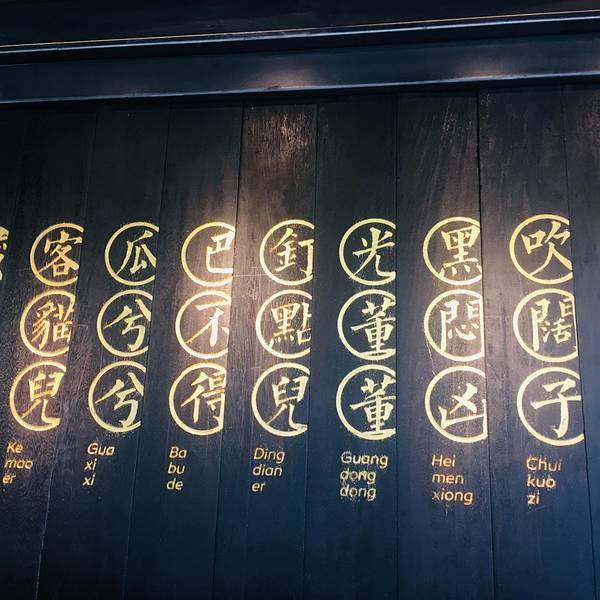 客貓兒
Ke
mao
er
瓜兮兮
Gua
xi
xi
巴不得
Ba
bu
de
釘點兒
Ding
dian
er
光董董
Guang
dong
dong
黑悶凶
Hei
men
xiong
吹闊子
Chui
kuo
zi